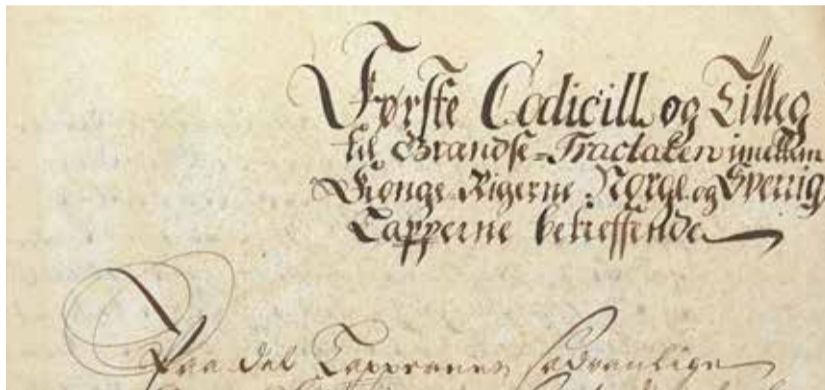 Første Codicill og Tilleg
til Grændse-Tractaten imellem
Konge-Rigerne Norge og Sverrig
Lapperne betreffende
Paa det Lapperne Sædvanlige